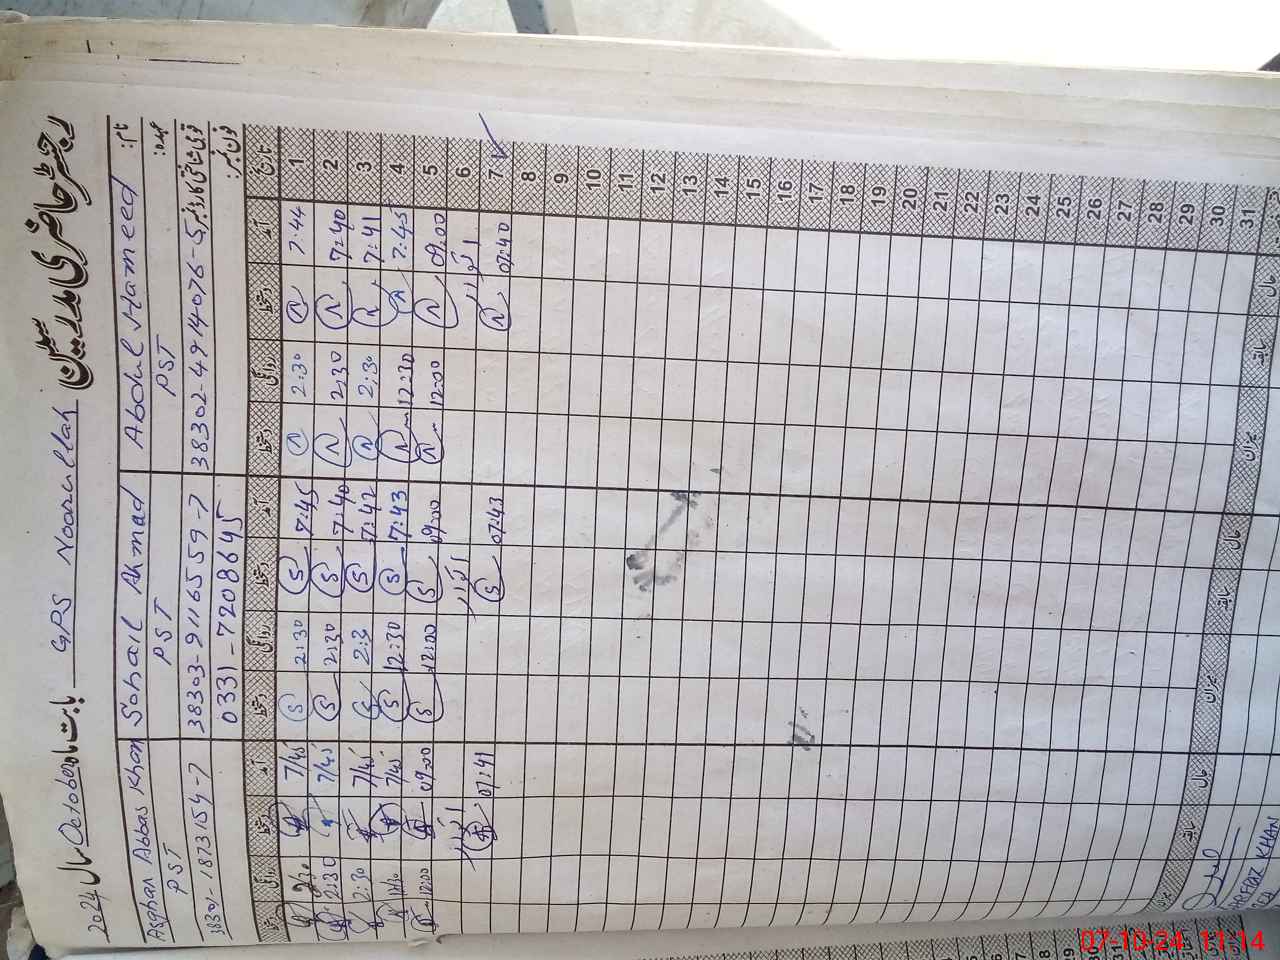 رجسٹر حاضری مدرسین GPS Noorullah بابت ماہ October سال 2024
نام: Abdul Hameed Sohail Ahmad Asghar Abbas Khan
عہدہ: PST PST PST
قومی شناختی کارڈ نمبر 38302-4914076-5 38303-9116559-7 38301-1873154-7
فون نمبر: 0331-7208645
تاریخ آمد دستخط روانگی دستخط آمد دستخط روانگی دستخط آمد دستخط روانگی دستخط
1 7:44 2:30 S 7:45 2:30 S 7/45 2:30
2 7:40 2:30 7:40 S 2:30 S 7/45 2:30
3 7:41 2:30 7:42 S 2:3 S 7/45 2:30
4 7:45 12:30 7:43 S 12:30 S 7/45 12:30
5 09:00 12:00 09:00 S 12:00 S 09:00 12:00
6 اتوار اتوار اتوار
7 07:40 07:43 S 07:41
8
9
10
11
12
13
14
15
16
17
18
19
20
21
22
23
24
25
26
27
28
29
30
31
حال سابقہ میزان حال سابقہ میزان حال سابقہ میزان
KHAN
07-10-24 11:14